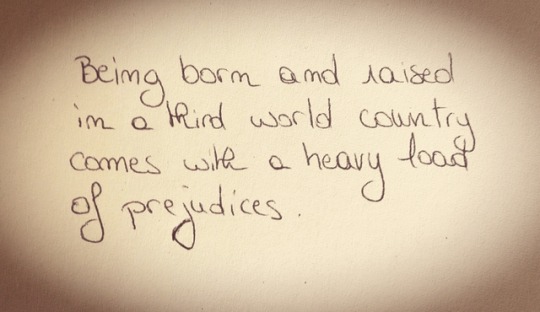 Being born and raised
in a third world country
comes with a heavy load
of prejudices.